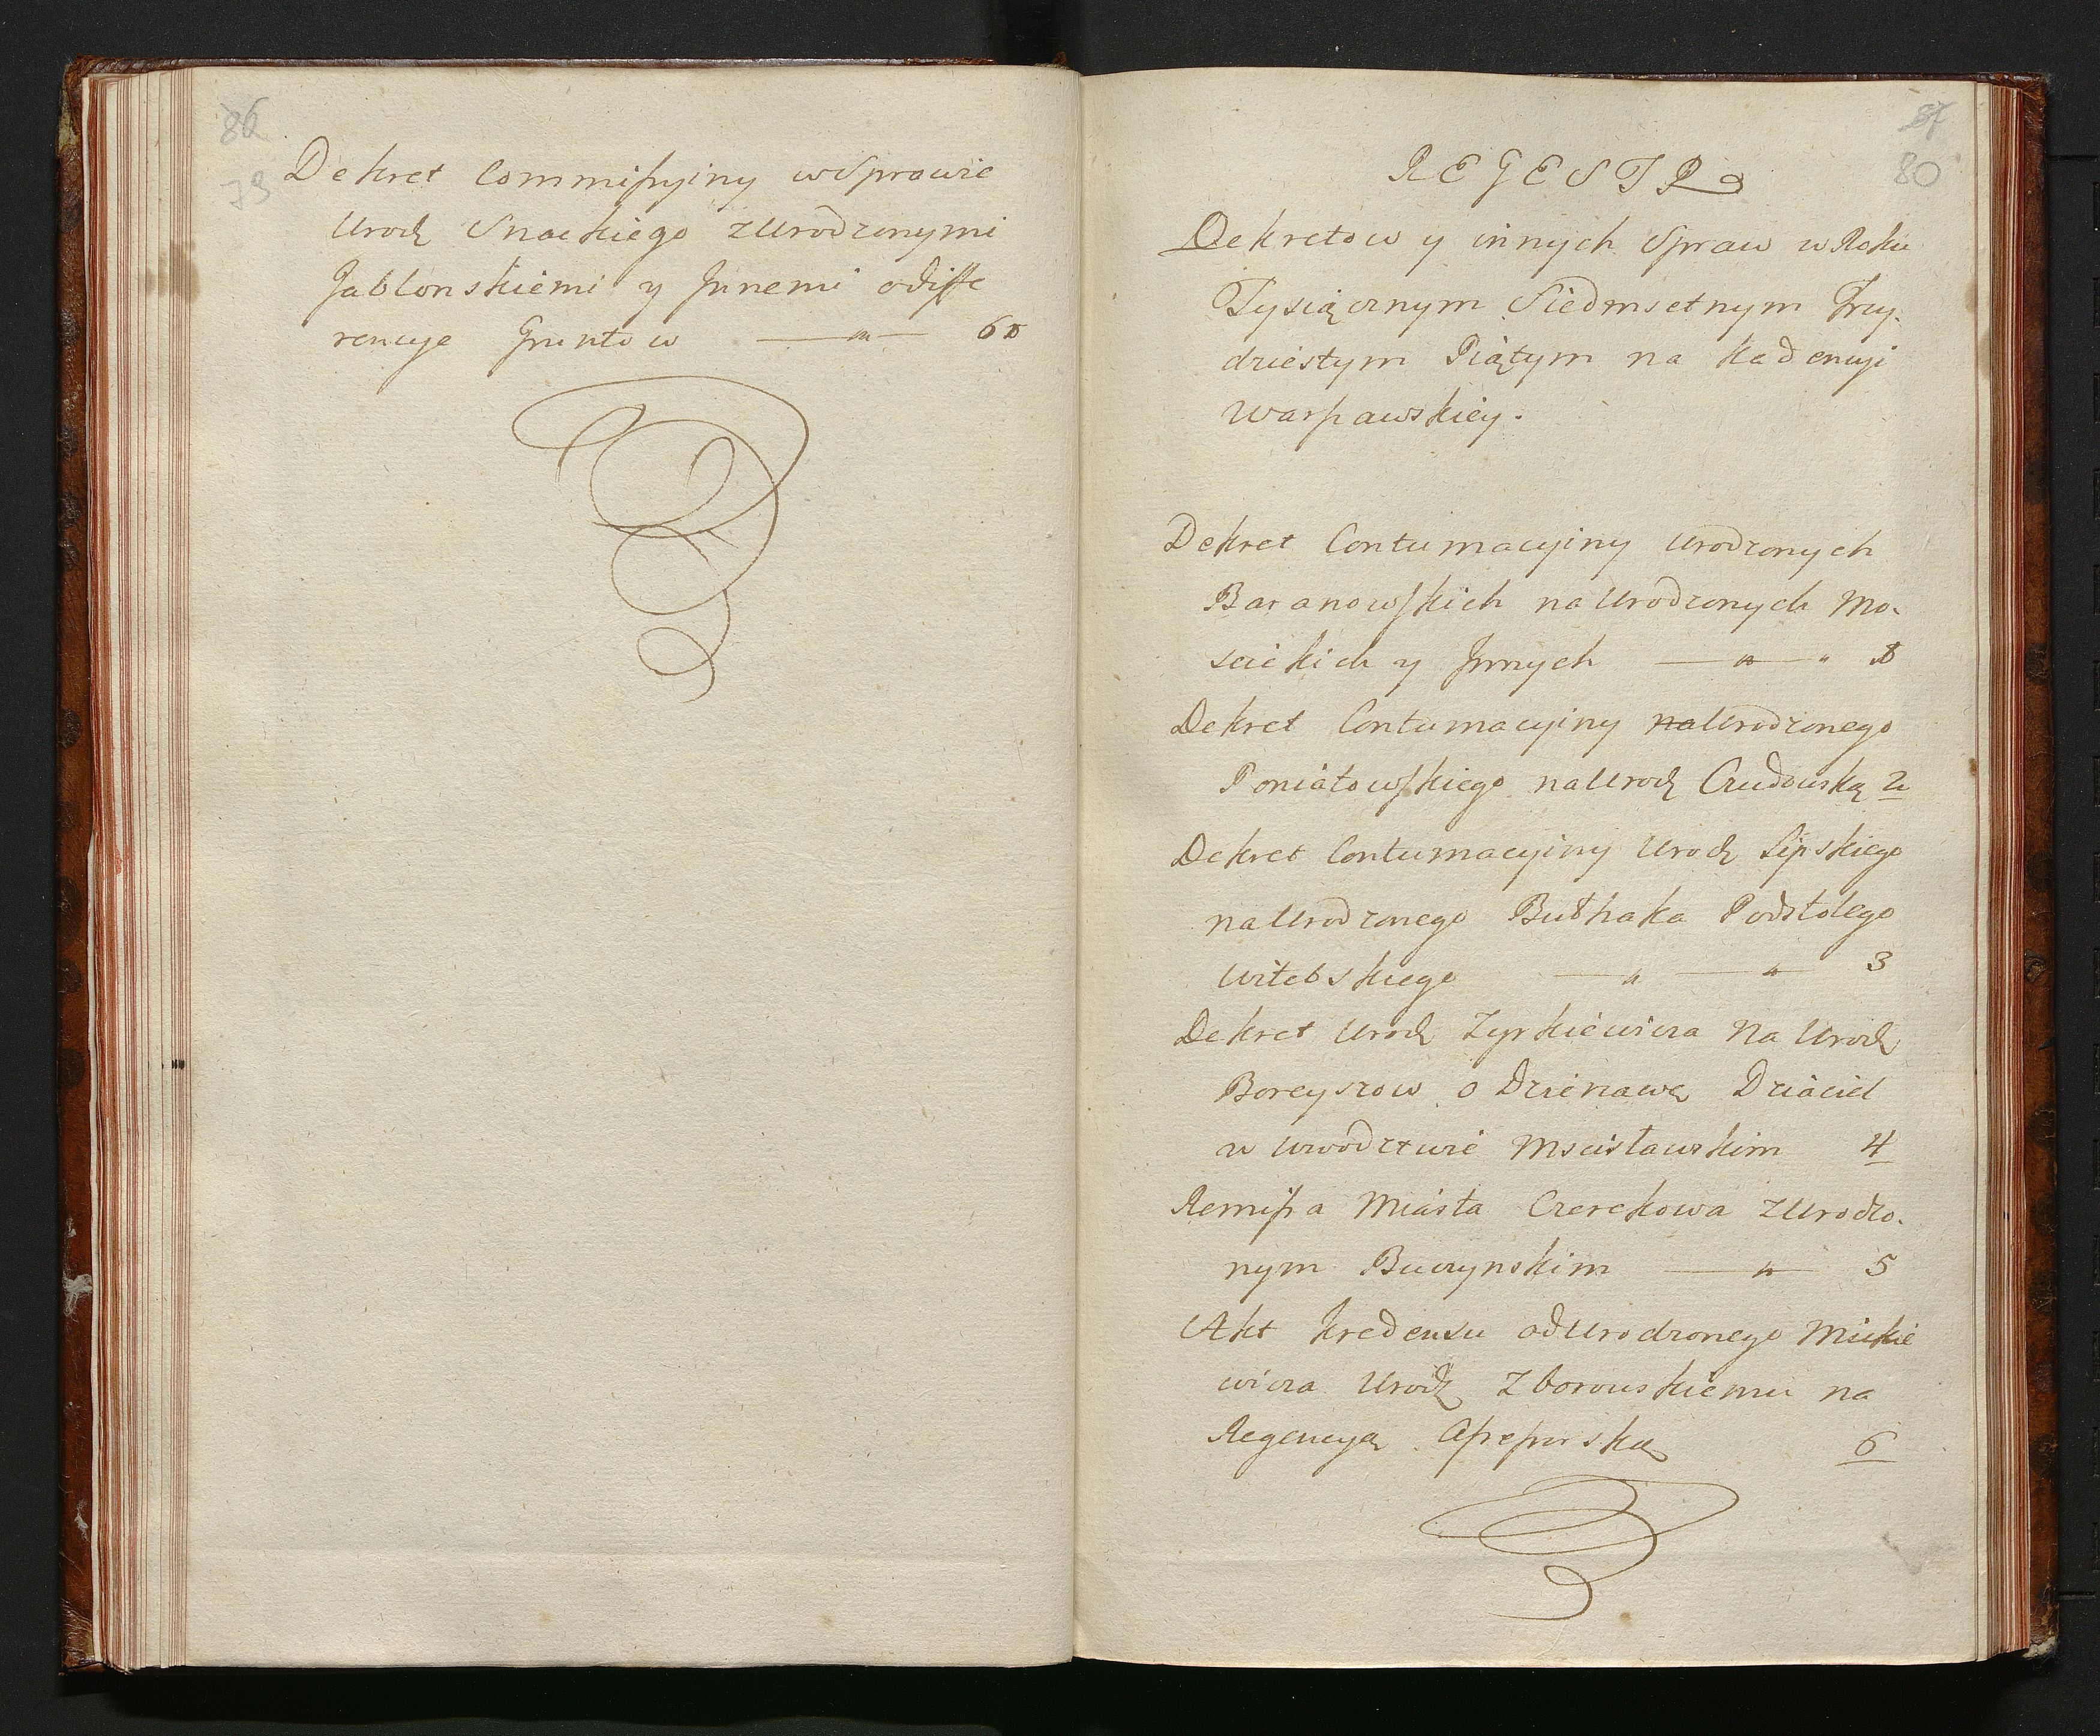 86
79
Dekret Commissyiny w Sprawie
Urodz Snackiego z Urodzonymi
Jabłonskiemi y Jnnemi o diffe
rencye Gruntow 60
87
80
REGESTR
Dekretow y innych Spraw w Roku
Tysiącznym Siedmsetnym Trzy-
dziestym Piątym na Kadencyi
Warszawskiey.
Dekret Contumacyiny Urodzonych
Baranowskich na Urodzonych Mo-
scickich y Jnnych 1
Dekret Contumacyiny na Urodzonego
Poniatowskiego na Urodz Czudowską 2
Dekret Contumacyiny Urodz Lipskiego
na Urodzonego Bułhaka Podstolego
Witebskiego 3
Dekret Urodz Zyrkiewicza Na Urodz
Boreyszow o Dzierzawę Dziaciel
w Wwodztwie Mscisławskim 4
Remissa Miasta Czerekowa z Urodzo-
nym Buczynskim 5
Akt kredensu od Urodzonego Mickie
wicza Urodz Zborowskiemu na
Regencyą Assessorską 6